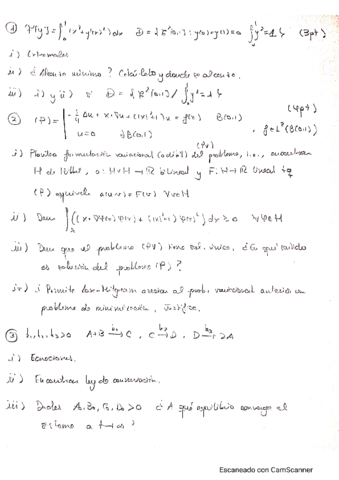 ① F[y] = ∫₀¹ (x² + y'(x)²) dx D = { E²[0,1] : y(0) = y(1) = 0 ∫₀¹ y² = 1 } (3pt)
i) Extremales
ii) ¿Alcanza mínimo? Calcúlalo y donde se alcanza.
iii) i) y ii) si D = { E²[0,1] / ∫₀¹ y² = 1 }
② (P) = { -¼ Δu + x·∇u + (|x|²+1)u = f(x) B(0,1) (4pt)
u = 0 ∂B(0,1) f ∈ L²(B(0,1))
(PV)
i) Plantea formulación variacional (débil) del problema, i.e., encontrar
H de Hilbert, a: H×H → ℝ bilineal y F: H → ℝ lineal tq
(P) equivale a(u,v) = F(v) ∀v∈H
ii) Dem ∫ ((x·∇φ(x)) φ(x) + (|x|²+1) φ(x)²) dx ≥ 0 ∀φ∈H
iii) Dem que el problema (PV) tiene sol. única, ¿En qué sentido
es solución del problema (P)?
iv) ¿Permite Lax-Milgram asociar al prob. variacional anterior un
problema de minimización? Justifica.
③ k₁, k₂, k₃ > 0 A+B →(k₁) C, C →(k₂) D, D →(k₃) 2A
i) Ecuaciones.
ii) Encontrar ley de conservación.
iii) Dados A₀, B₀, C₀, D₀ > 0 ¿A qué equilibrio converge el
sistema a t→∞?
Escaneado con CamScanner